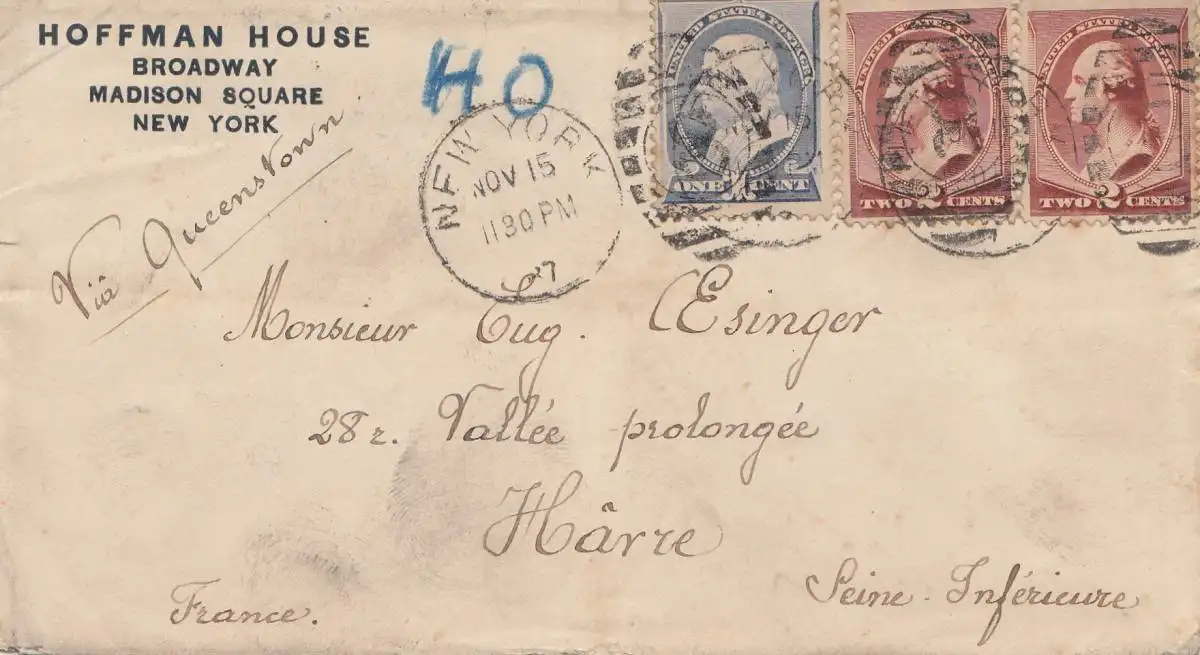 HOFFMAN HOUSE
BROADWAY
MADISON SQUARE
NEW YORK
HO
Viâ Queenstown
NEW YORK
NOV 15
1130PM
87
UNITED STATES POSTAGE
ONE 1 CENT
UNITED STATES POSTAGE
TWO 2 CENTS
UNITED STATES POSTAGE
TWO 2 CENTS
Monsieur Eug. Œsinger
28 r. Vallée prolongée
Hâvre
Seine-Inférieure
France.